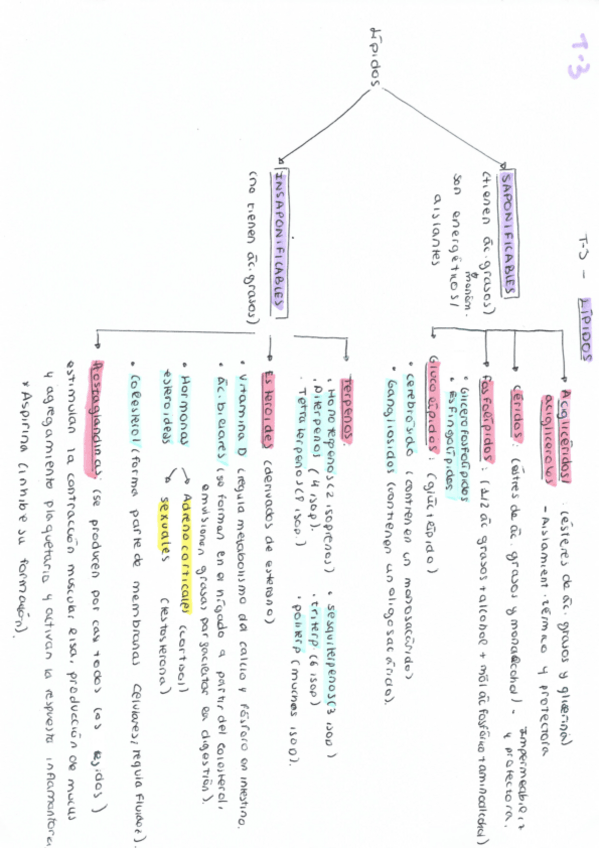 T-3
T-3 - LÍPIDOS
Lípidos
SAPONIFICABLES
(tienen ác. grasos)
son energéticos/
aislantes
Acilglicéridos/ : (ésteres de ác. grasos y glicerina)
acilgliceroles - Aislamient. térmico y protectora
Céridos: (éstres de ác. grasos y monoalcohol) - Impermeabiliz
y protectora.
Fosfolípidos: (1/2 ác grasos + alcohol + mol ác fosfórico + aminoalcohol)
· Glicerofosfolípidos
· Esfingolípidos
Glucolípidos: (glúc+lípido)
· cerebrósido (contienen un monosacárido)
· Gangliósidos (contienen un oligosacárido).
INSAPONIFICABLES
(no tienen ác. grasos)
Terpenos:
· Monoterpenos (2 isoprenos) · sesquiterpenos (3 isop)
· Diterpenos (4 isop). · triterp (6 isop)
· Tetraterpenos (8 isop.) · politerp (muchas isop).
Esteroides (derivados de esterano)
· Vitamina D (regula metabolismo da calcio y fósforo en intestino.
· ác. biliares (se forman en el hígado a partir del colesterol,
emulsionan grasas par facilitar en digestión).
· Hormonas → Adrenocorticales (cortisol)
esteroideas → sexuales (testosterona)
· Colesterol (forma parte de membranas celulares, regula fluidez).
Prostaglandinas: (se producen por casi todos los tejidos)
estimulan la contracción muscular lisa, producción de mucus
y agregamiento plaquetario y activan la respuesta inflamantora
* Aspirina (inhibe su formación).